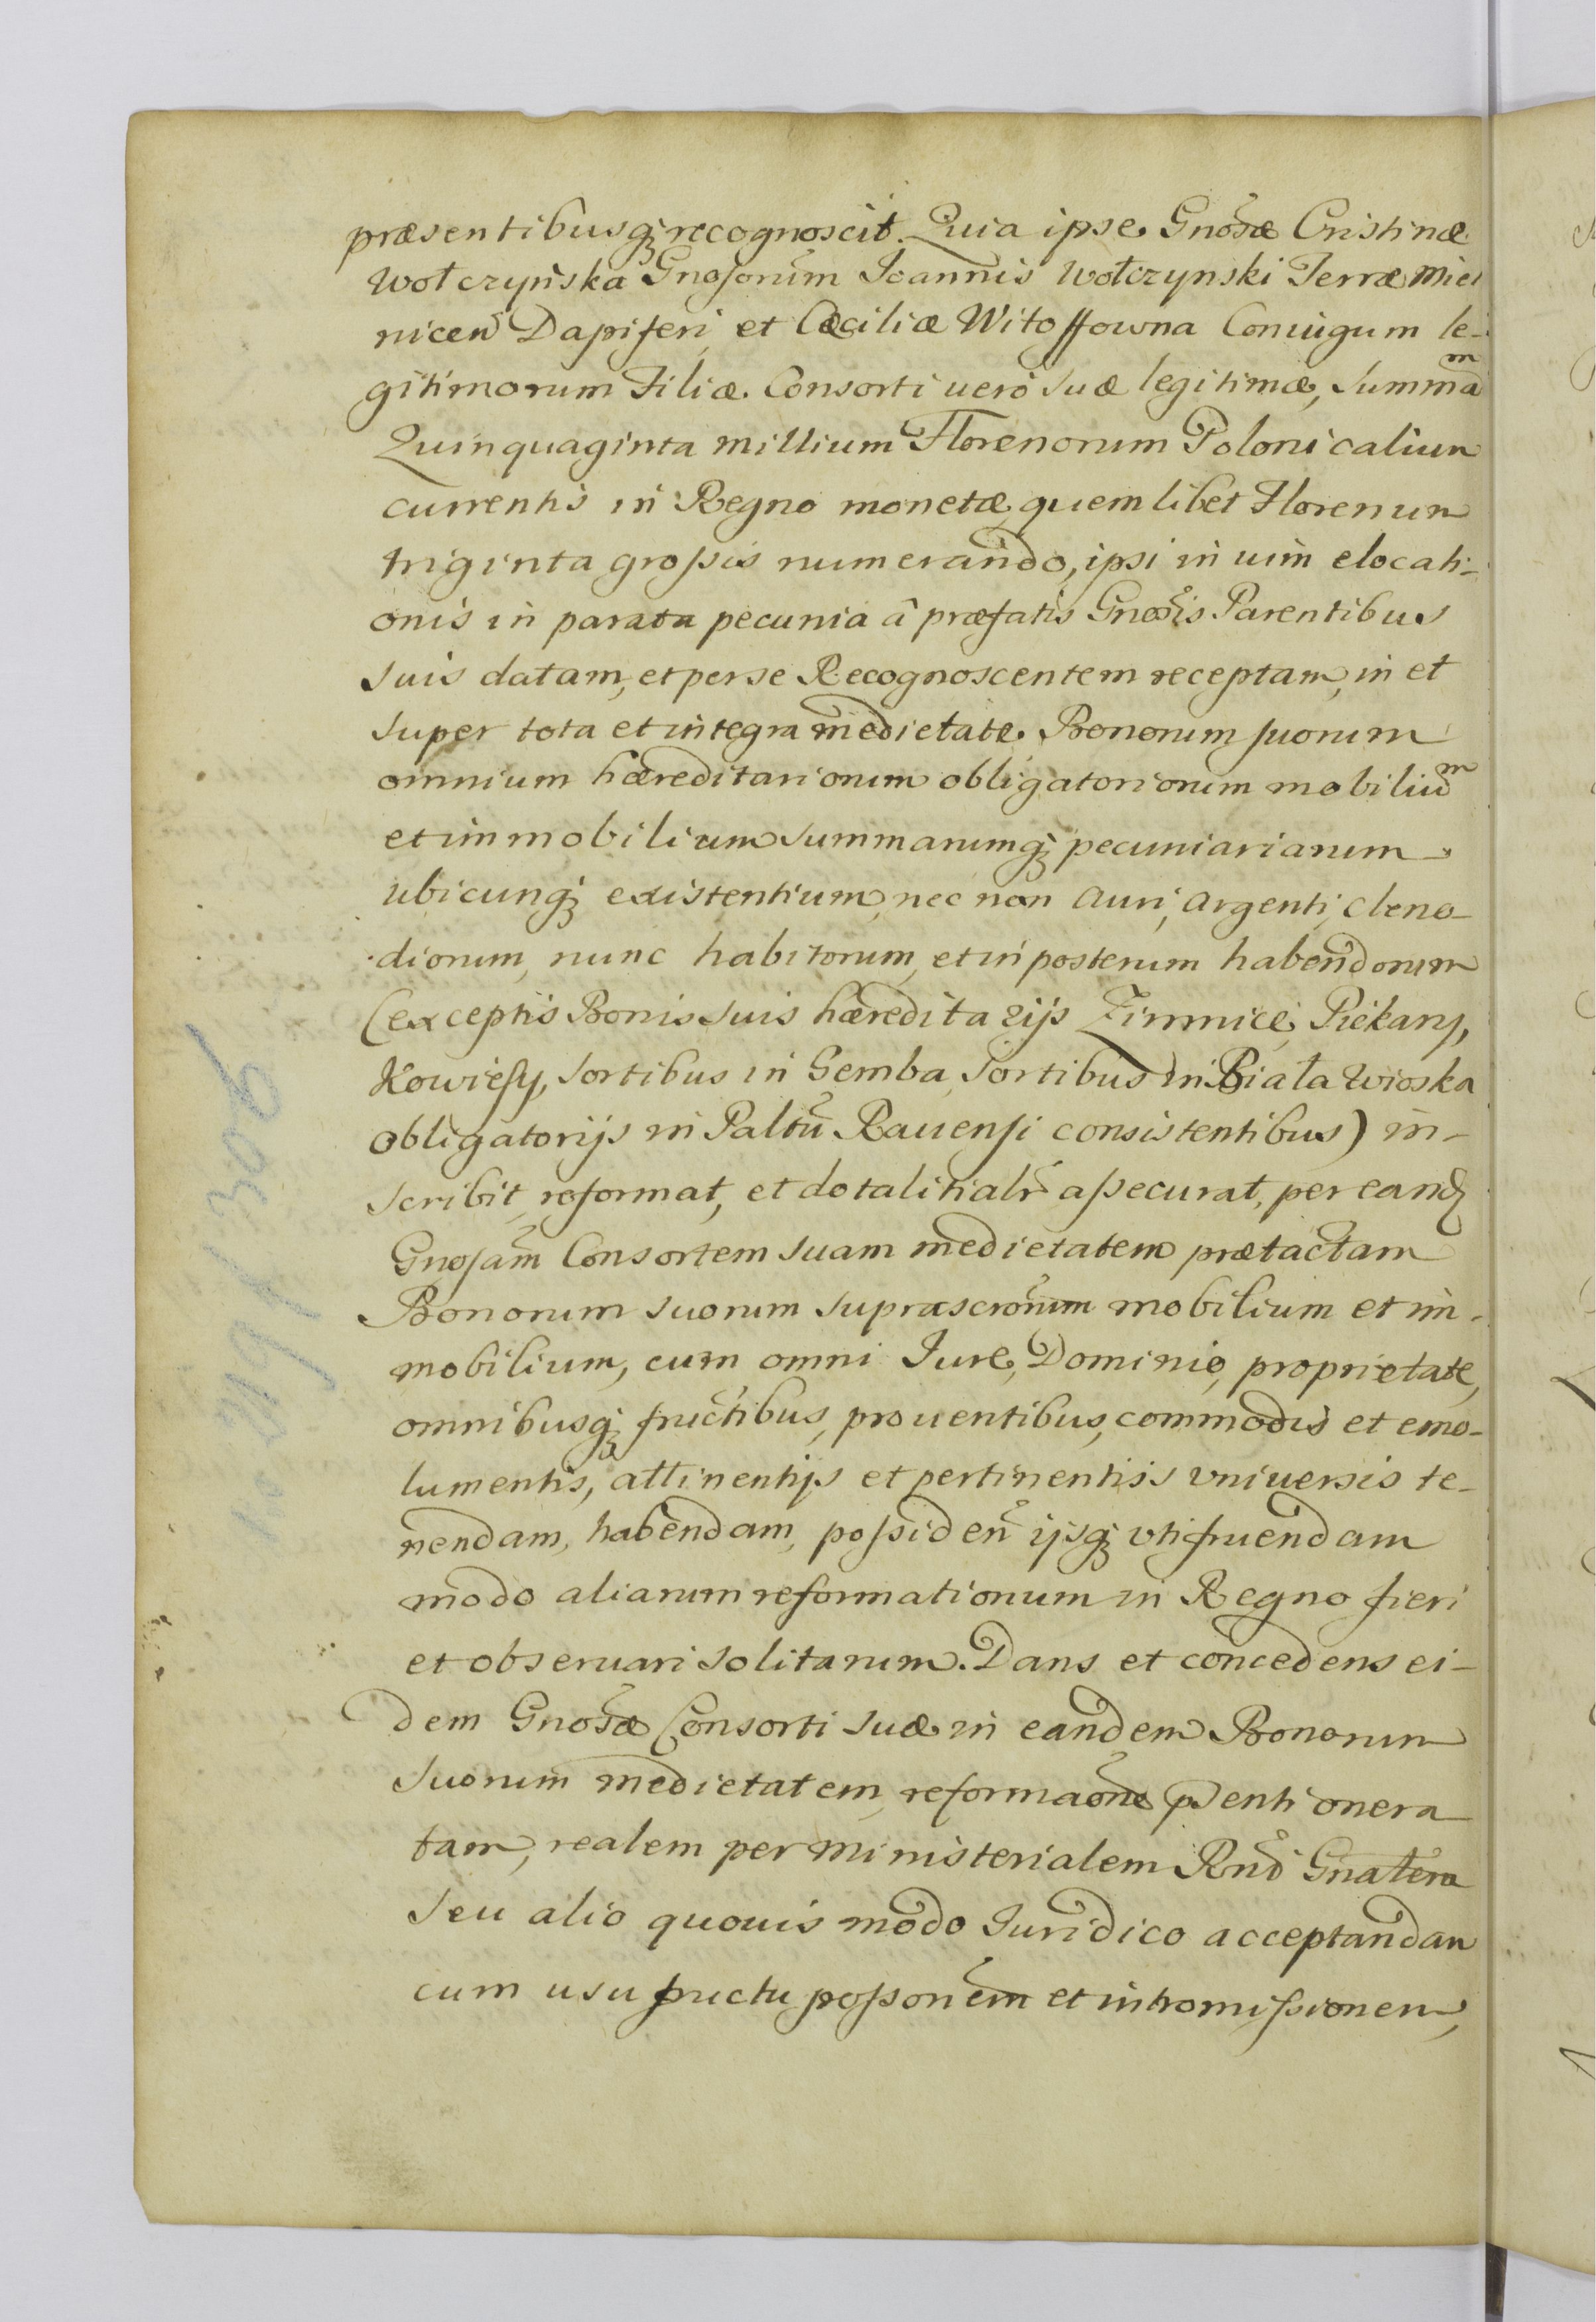 præsentibusq₃ recognoscit. Quia ipse Gnosæ Cristinæ
Wołczyńska Gnosorum Joannis Wołczynski Terræ Miel
nicen Dapiferi, et Cæciliæ Witossowna Coniugum le-
gitimorum Filiæ. Consorti uero suæ legitimæ, Summam
Quinquaginta millium Florenorum Polonicalium
currentis in Regno monetæ quemlibet Florenum
triginta grossis numerando, ipsi in uim elocati-
onis in parata pecunia â præfatis Gnosis Parentibus
suis datam, et per se Recognoscentem receptam, in et
super tota et integra medietate. Bonorum suorum
omnium hæreditariorum obligatoriorum mobilium
et immobilium summarumq₃ pecuniariarum
ubicunq₃ existentium, nec non auri, argenti, cleno-
diorum, nunc habitorum, et in posterum habendorum
(exceptis Bonis suis hæreditarijs Zimnice, Piekary,
Kowiesy, sortibus in Gemba, sortibus in Biała Wioska
obligatorijs in Paltu Rauensi consistentibus) in-
scribit, reformat, et dotalitialr assecurat, per eand
Gnosam Consortem suam medietatem prætactam
Bonorum suorum suprascrorum mobilium et im-
mobilium, cum omni Jure, Dominio, proprietate,
omnibusq₃ fructibus, prouentibus, commodis et emo-
lumentis, attinentijs et pertinentijs vniuersis te-
nendam, habendam, possiden ijsq₃ vtifruendam
modo aliarum reformationum in Regno fieri
et obseruari solitarum. Dans et concedens ei-
dem Gnosæ Consorti suæ in eandem Bonorum
suorum medietatem, reformaone pnti onera
tam, realem per Ministerialem Rnd Gnalem
seu alio quouis modo Juridico acceptandam
cum usufructu possonem et intromissionem,